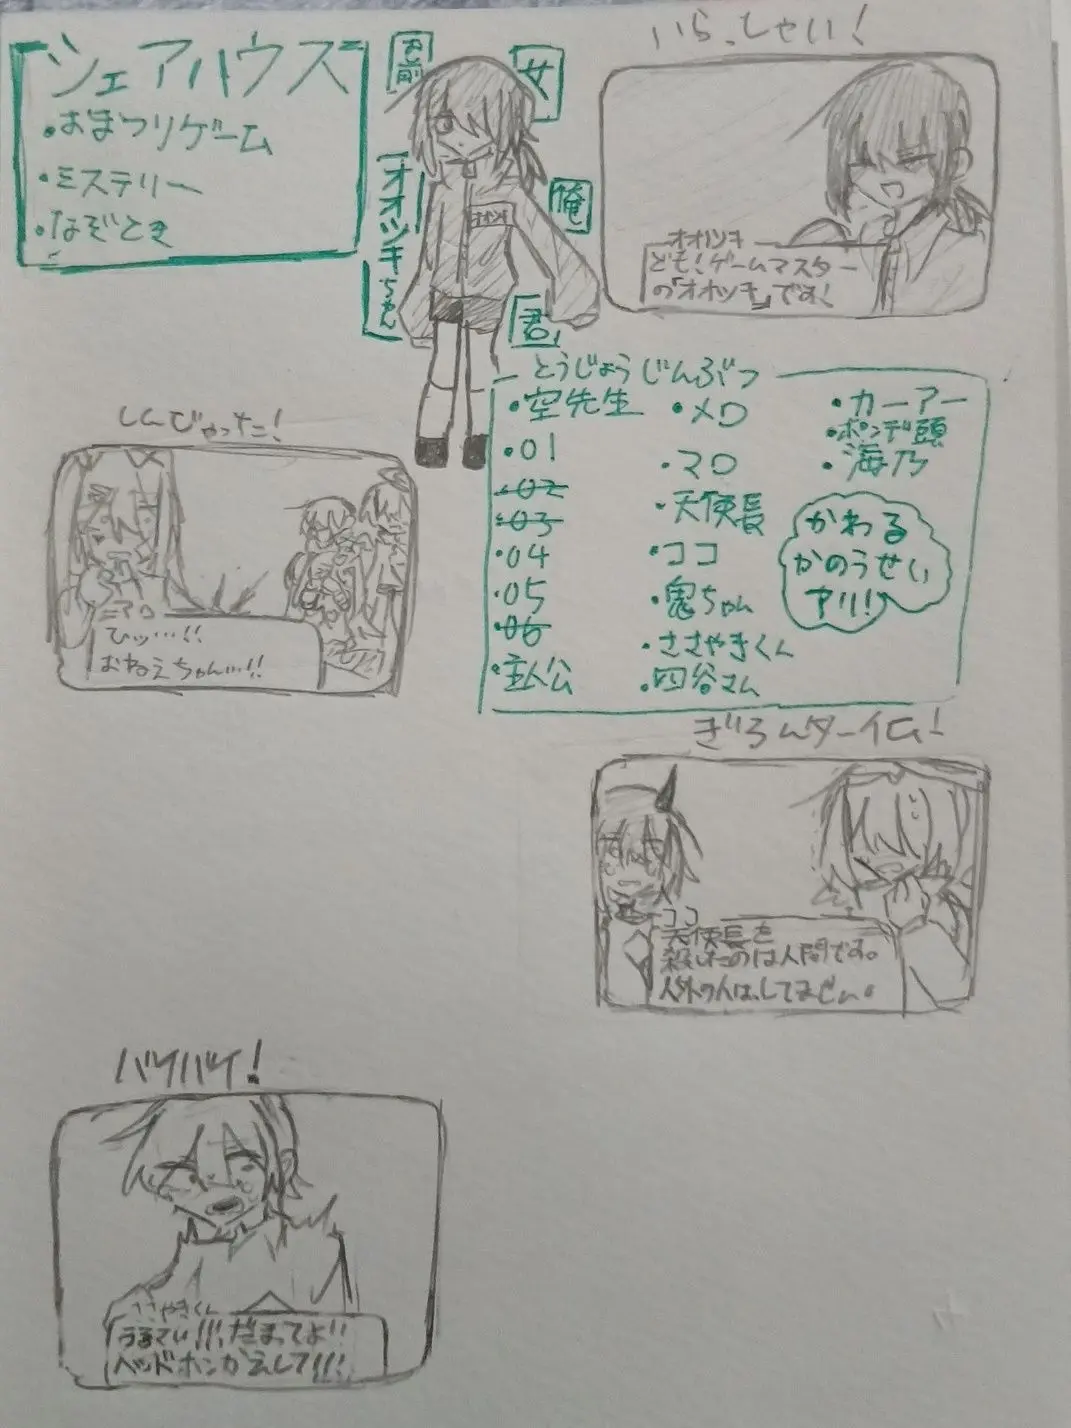 シェアハウス
・おまつりゲーム
・ミステリー
・なぞとき
お前
女
オオツキちゃん
俺
君
オオツキ
いらっしゃい!
オオツキ
ども!ゲームマスター
の「オオツキ」です!
とうじょうじんぶつ
・空先生
・01
・02
・03
・04
・05
・06
・主人公
・メロ
・マロ
・天使長
・ココ
・鬼ちゃん
・ささやきくん
・四谷マム
・カーアー
・ポンデ頭
・海乃
かわる
かのうせい
アリ!
しんじゃった!
マロ
ひッ…!!
おねえちゃん…!!
ぎろんターイム!
ココ
天使長を
殺したのは人間です。
人外の人は、してません。
バイバイ!
ささやきくん
うるさい!!!だまってよ!!
ヘッドホンかえして!!!